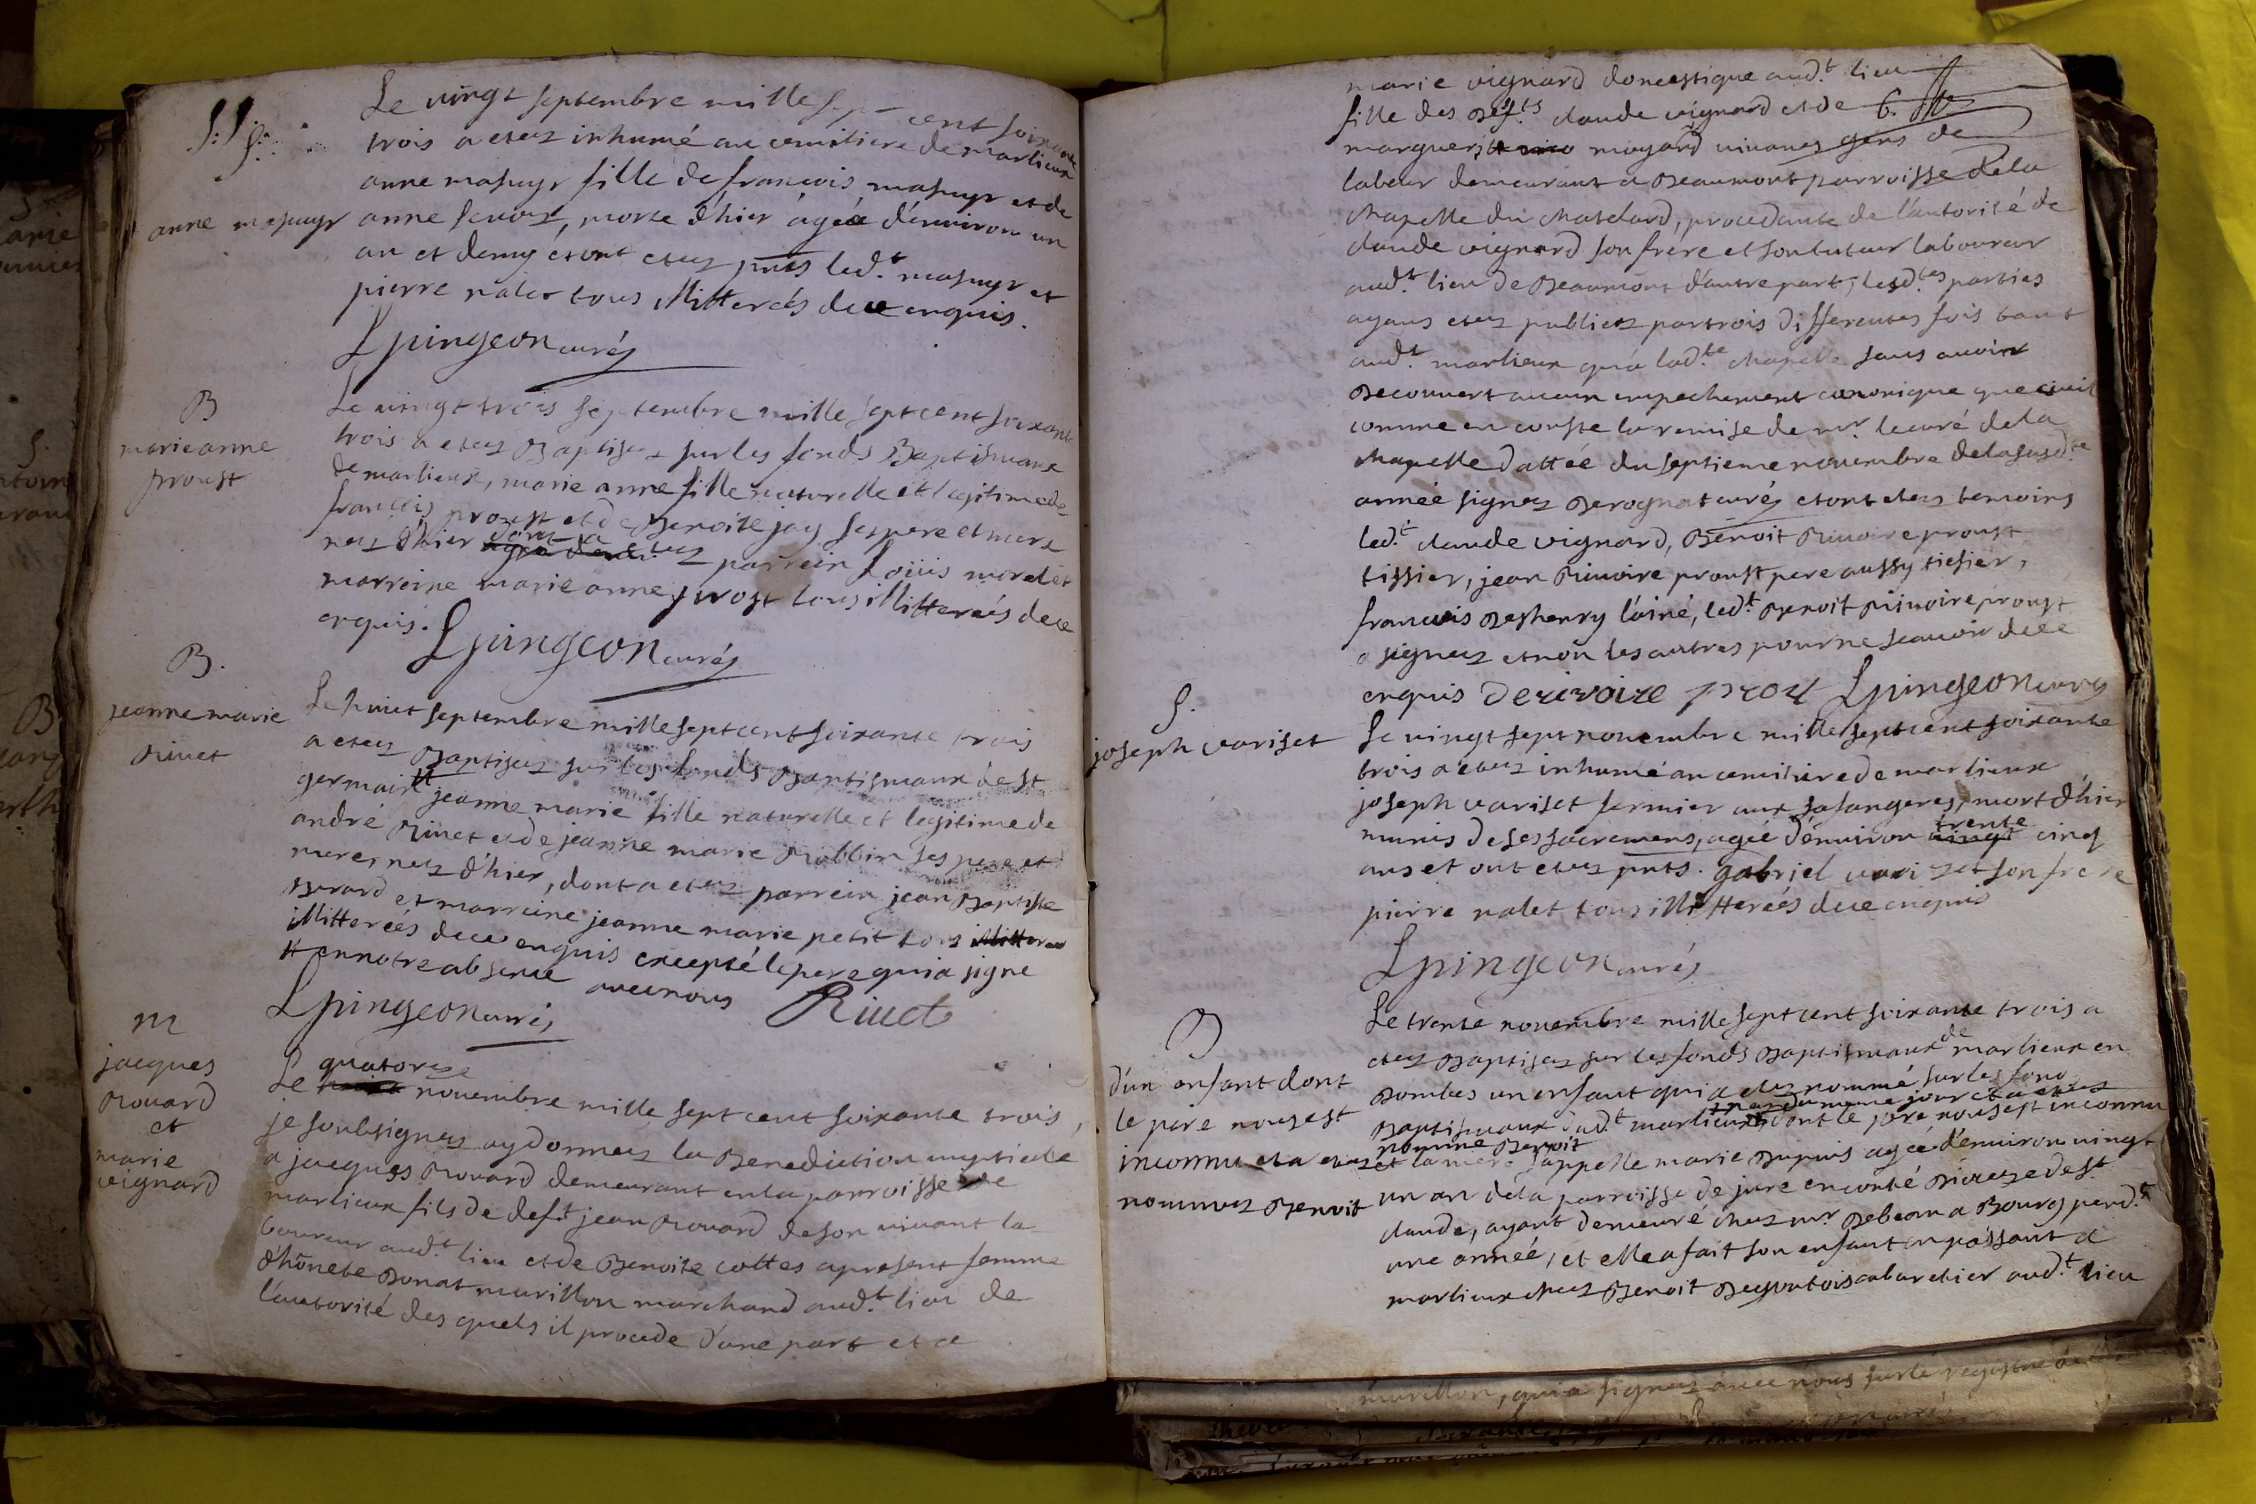 S:
Le vingt septembre mille sept cent soixante
trois a etez inhumé au cemitiere de marlieux
anne mapuyr fille de francois mapuyr et de
anne mapuyr
anne morte d'hier agée d'environ un
an et demy et ont etez pnts led.t mapuyr et
pierre nalet tous illitterées de ce enquis.
Lpingeon curéz
B
marie anne
proust
Le vingt trois septembre mille sept cent soixante
trois a etez Baptisez sur les fonds Baptismaux
de marlieux, marie anne fille naturelle et legitime de
francois proust et de Benoite jay ses pere et mere
nez d'hier dont a etez parrein Loüis morel et
marreine marie anne prost tous illitterées de ce
enquis. Lpingeon curéz
B.
jeanne marie
Rivet
Le huict septembre mille sept cent soixante trois
a etez Baptisez sur les fonds Baptismaux de st
germain jeanne marie fille naturelle et legitime de
andré Rivet et de jeanne marie Robbin ses pere et
mere, nez d'hier, dont a etez parrein jean Baptiste
Berard et marreine jeanne marie petit tous
illitterées de ce enquis excepté le pere qui a signé
# en notre absence avec nous Rivet
Lpingeon curéz
m
jacques
Rouard
et
marie
vignard
quatorze
Le novembre mille sept cent soixante trois,
je soubsignez ay donnez la Benediction nuptialle
a jacques Rouard demeurant en la parroisse de
marlieux fils de def.t jean Rouard de son vivant la-
boureur aud.t lieu et de Benoite cottes apresent femme
d'hônete Donat murillon marchand aud.t lieu de
l'autorité des quels il procede d'une part et a
marie vignard domestique aud.t lieu
fille des Def.ts claude vignard et de
marguerite moyard vivans gens de
labeur demeurant a Beaumont parroisse de la
chapelle du chatelard, procedante de l'autorité de
claude vignard son frere et son tuteur laboureur
aud.t lieu de Beaumont d'autre part; lesd.tes parties
ayans etez publiez par trois differentes fois tant
aud.t marlieux qu'a lad.te chapelle sans avoir
Decouvert aucun empechement canonique que civil
comme en conste la remise de mr. le curé de la
chapelle dattée du septieme novembre de la susd.te
année signez Derognat curéz et ont etez temoins
led.t claude vignard, Benoit Rivoire proust
tissier, jean Rivoire proust pere aussy tissier,
francois Deshenry l'ainé, led.t Benoit Rivoire proust
a signez et non les autres pour ne sçavoir de ce
enquis Derivoire Lpingeon curéz
S.
joseph variset
Le vingt sept novembre mille sept cent soixante
trois a etez inhumé au cemitiere de marlieux
joseph variset fermier aux mort d'hier
munis de ses sacremens, agée d'environ trente cinq
ans et ont etez pnts. gabriel variset son frere
pierre nalet tous illitterées de ce enquis
Lpingeon curéz
B
d'un enfant dont
le pere nous est
inconnu et a etez
nommez Benoit
Le trente novembre mille sept cent soixante trois a
etez Baptisez sur les fonds Baptismaux de marlieux en
Dombes un enfant qui a etez nommé sur les fons
Baptismaux dud.t marlieux nez du meme jour et a etez
nommé Benoit dont le pere nous est inconnu
et la mere s'appelle marie Dupuis agée d'environ vingt
un an de la parroisse de jure en conté Dioceze de st
claude, ayant demeuré chez mr. Debeon a Bourg pend.t
une année, et elle a fait son enfant en passant a
marlieux chez Benoit cabaretier aud.t lieu
murillon, qui a signez avec nous sur le registre